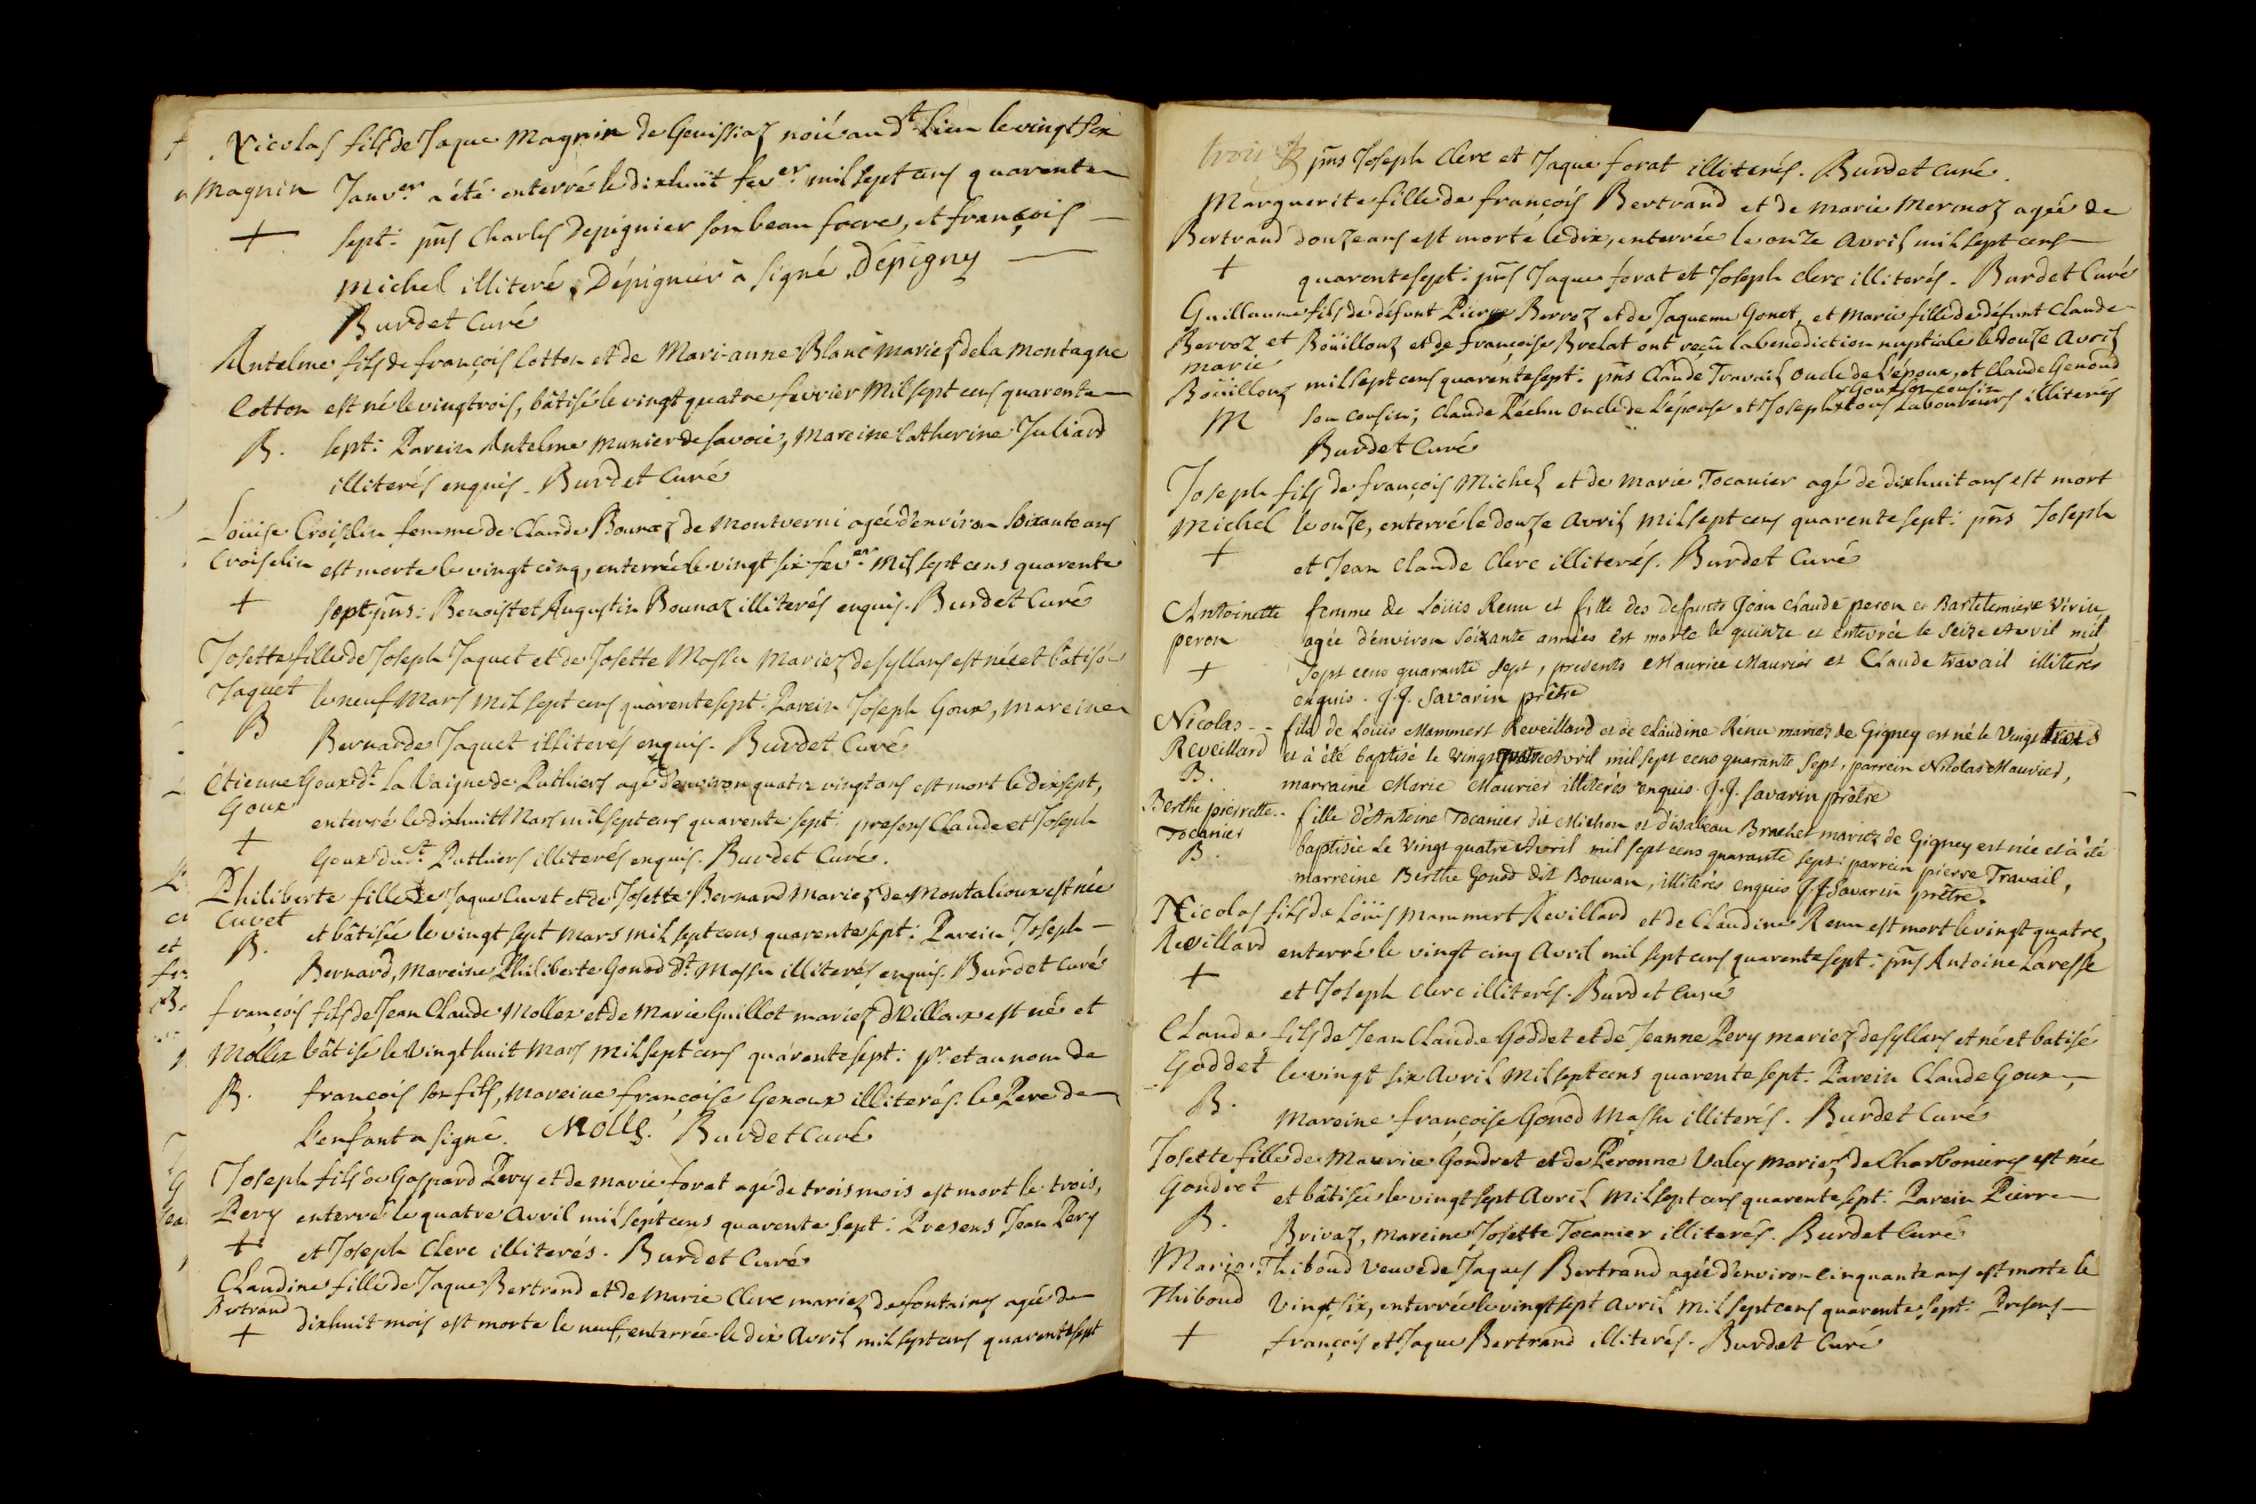 Nicolas fils de Jaque Magnin de Genissiaz noié aud.t Lieu le vingt six
Magnin Janv.er a été enterré le dixhuit fev.er mil sept cens quarente
+ sept: pns Charles Depignier son beau frere, et françois
michel illiteré, Dépignier a signé. Dépigny
Burdet Curé
Antelme fils de françois Cotton et de Mari-anne Blanc mariez de la montagne
Cotton est né le vingtrois, bâtisé le vingt quatre fevrier Mil sept cens quarente
B. sept: Parein Antelme munier de savoie, Mareine Catherine Juliard
illiterés enquis. Burdet Curé
Loüise Croiselin femme de Claude Bounaz de Montverni agée d'environ soixante ans
Croiselin est morte le vingt cinq, enterrée le vingt six fev.er mil sept cens quarente
+ sept pns: Benoist et Augustin Bounaz illiterés enquis. Burdet Curé
Josette fille de Joseph Jaquet et de Josette Massu Mariez de syllans est née et bâtisée
Jaquet le neuf Mars Mil sept cens quarente sept: Parein Joseph Goux, mareine
B Bernarde Jaquet illiterés enquis. Burdet Curé
Etienne Goux d.t la Vaigne de Puthiers agé d'environ quatre vingt ans est mort le dixsept,
Goux enterré le dixhuit Mars mil sept cens quarente sept: presens Claude et Joseph
+ Goux dud.t Puthiers illiterés enquis. Burdet Curé.
Philiberte fille de Jaque Cuvet et de Josette Bernard Mariez de Montalioux est née
Cuvet et bâtisée le vingt sept Mars mil sept cens quarente sept: Parein Joseph
B. Bernard, Mareine Philiberte Gonod d.t Massu illiterés enquis. Burdet Curé
françois fils de Jean Claude Mollex et de Marie Guillot mariez d'Villax est né et
Mollex bâtisé le vingt huit Mars mil sept cens quarente sept: pr. et au nom de
B. françois son fils, Mareine françoise Genoux illiterés. le Pere de
L'enfant a signé. Molle. Burdet Curé
Joseph fils de Gaspard Pery et de marie forat agé de trois mois est mort le trois,
Pery enterré le quatre Avril mil sept cens quarente sept: Presens Jean Pery
+ et Joseph Clerc illiterés. Burdet Curé
Claudine fille de Jaque Bertrand et de Marie Clerc mariez de fontaines agée de
Bertrand dixhuit mois est morte le neuf, enterrée le dix Avril mil sept cens quarente sept
+
trois pns Joseph Clerc et Jaque forat illiterés. Burdet Curé.
Marguerite fille de françois Bertrand et de Marie Mermoz agée de
Bertrand douze ans est morte le dix, enterrée le onze Avril mil sept cens
+ quarente sept: pns Jaque forat et Joseph Clerc illiterés. Burdet Curé
Guillaume fils de défunt Pierre Berroz et de Jaquema Gonet, et Marie fille de défunt Claude
Berroz et Boüillouz et de françoise Brelat ont reçu la benediction nuptiale le douze Avril
marie
Boüillouz mil sept cens quarente sept: pns Claude Travail Oncle de L'époux, et Claude Genoud
Goux son cousin
M son cousin; Claude Péchu Oncle de L'épouse et Joseph tous Laboureurs illiterés
Burdet Curé
Joseph fils de françois Michel et de Marie Tocanier agé de dixhuit ans est mort
Michel le onze, enterré le douze Avril mil sept cens quarente sept: pns Joseph
+ et Jean Claude Clerc illiterés. Burdet Curé
Antoinette femme de Loüis Renu et fille des defunts Jean claude peron et Bartelemiere Virin
peron agée d'environ Soixante années est morte le quinze et enterrée le Seize Avril mil
+ Sept cens quarante Sept, presents Maurice Maurier et Claude travail illiterés
enquis. J.J. Savarin prêtre
Nicolas fils de Louis Mammert Reveillard et de claudine Renu mariez de Gigney est né le Vingt trois
Reveillard et à été baptisé le Vingt quatre Avril mil sept cens quarante Sept, parrein Nicolas Maurier,
B. marraine Marie Maurier illiterés enquis. J.J. Savarin prêtre
Berthe pierrette fille d'Antoine Tocanier dit Michon et d'isabeau Brachet mariez de Gigney est née et à été
Tocanier baptisée Le Vingt quatre Avril mil sept cens quarante sept: parrein pierre Travail,
B. marreine Berthe Gonod dit Bouvan, illiterés enquis J.J. Savarin prêtre.
Nicolas fils de Loüis Mammert Revillard et de Claudine Renu est mort le vingt quatre,
Revillard enterré le vingt cinq Avril mil sept cens quarente sept: pns Antoine Laresse
+ et Joseph Clerc illiterés. Burdet Curé
Claude fils de Jean Claude Goddet et de Jeanne Pery mariez de syllans et né et batisé
Goddet le vingt six Avril mil sept cens quarente sept. Parein Claude Goux,
B. Mareine françoise Gonod Massu illiterés. Burdet Curé
Josette fille de Maurice Gondret et de Peronne Valey Mariez de Charbonieres est née
Gondret et bâtisée le vingt sept Avril Mil sept cens quarente sept: Parein Pierre
B. Brivaz, Mareine Josette Tocanier illiterés. Burdet Curé
Marie Thiboud veuve de Jaques Bertrand agée d'environ cinquante ans est morte le
Thiboud vingt six, enterrée le vingt sept Avril mil sept cens quarente sept: Presens
+ françois et Jaque Bertrand illiterés. Burdet Curé